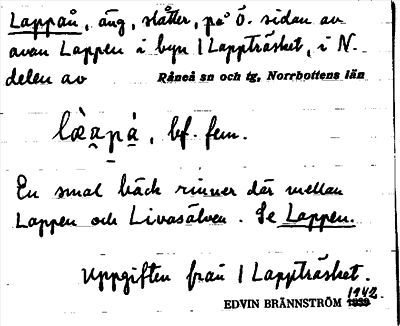 Lappån, äng, slåtter, på ö. sidan av
avan Lappen i byn 1 Lappträsket, i N.
delen av Råneå sn och tg, Norrbottens län
bf. fem.
En smal bäck rinner där mellan
Lappen och Livasälven. Se Lappen.
Uppgiften från 1 Lappträsket.
1942.
EDVIN BRÄNNSTRÖM 1939